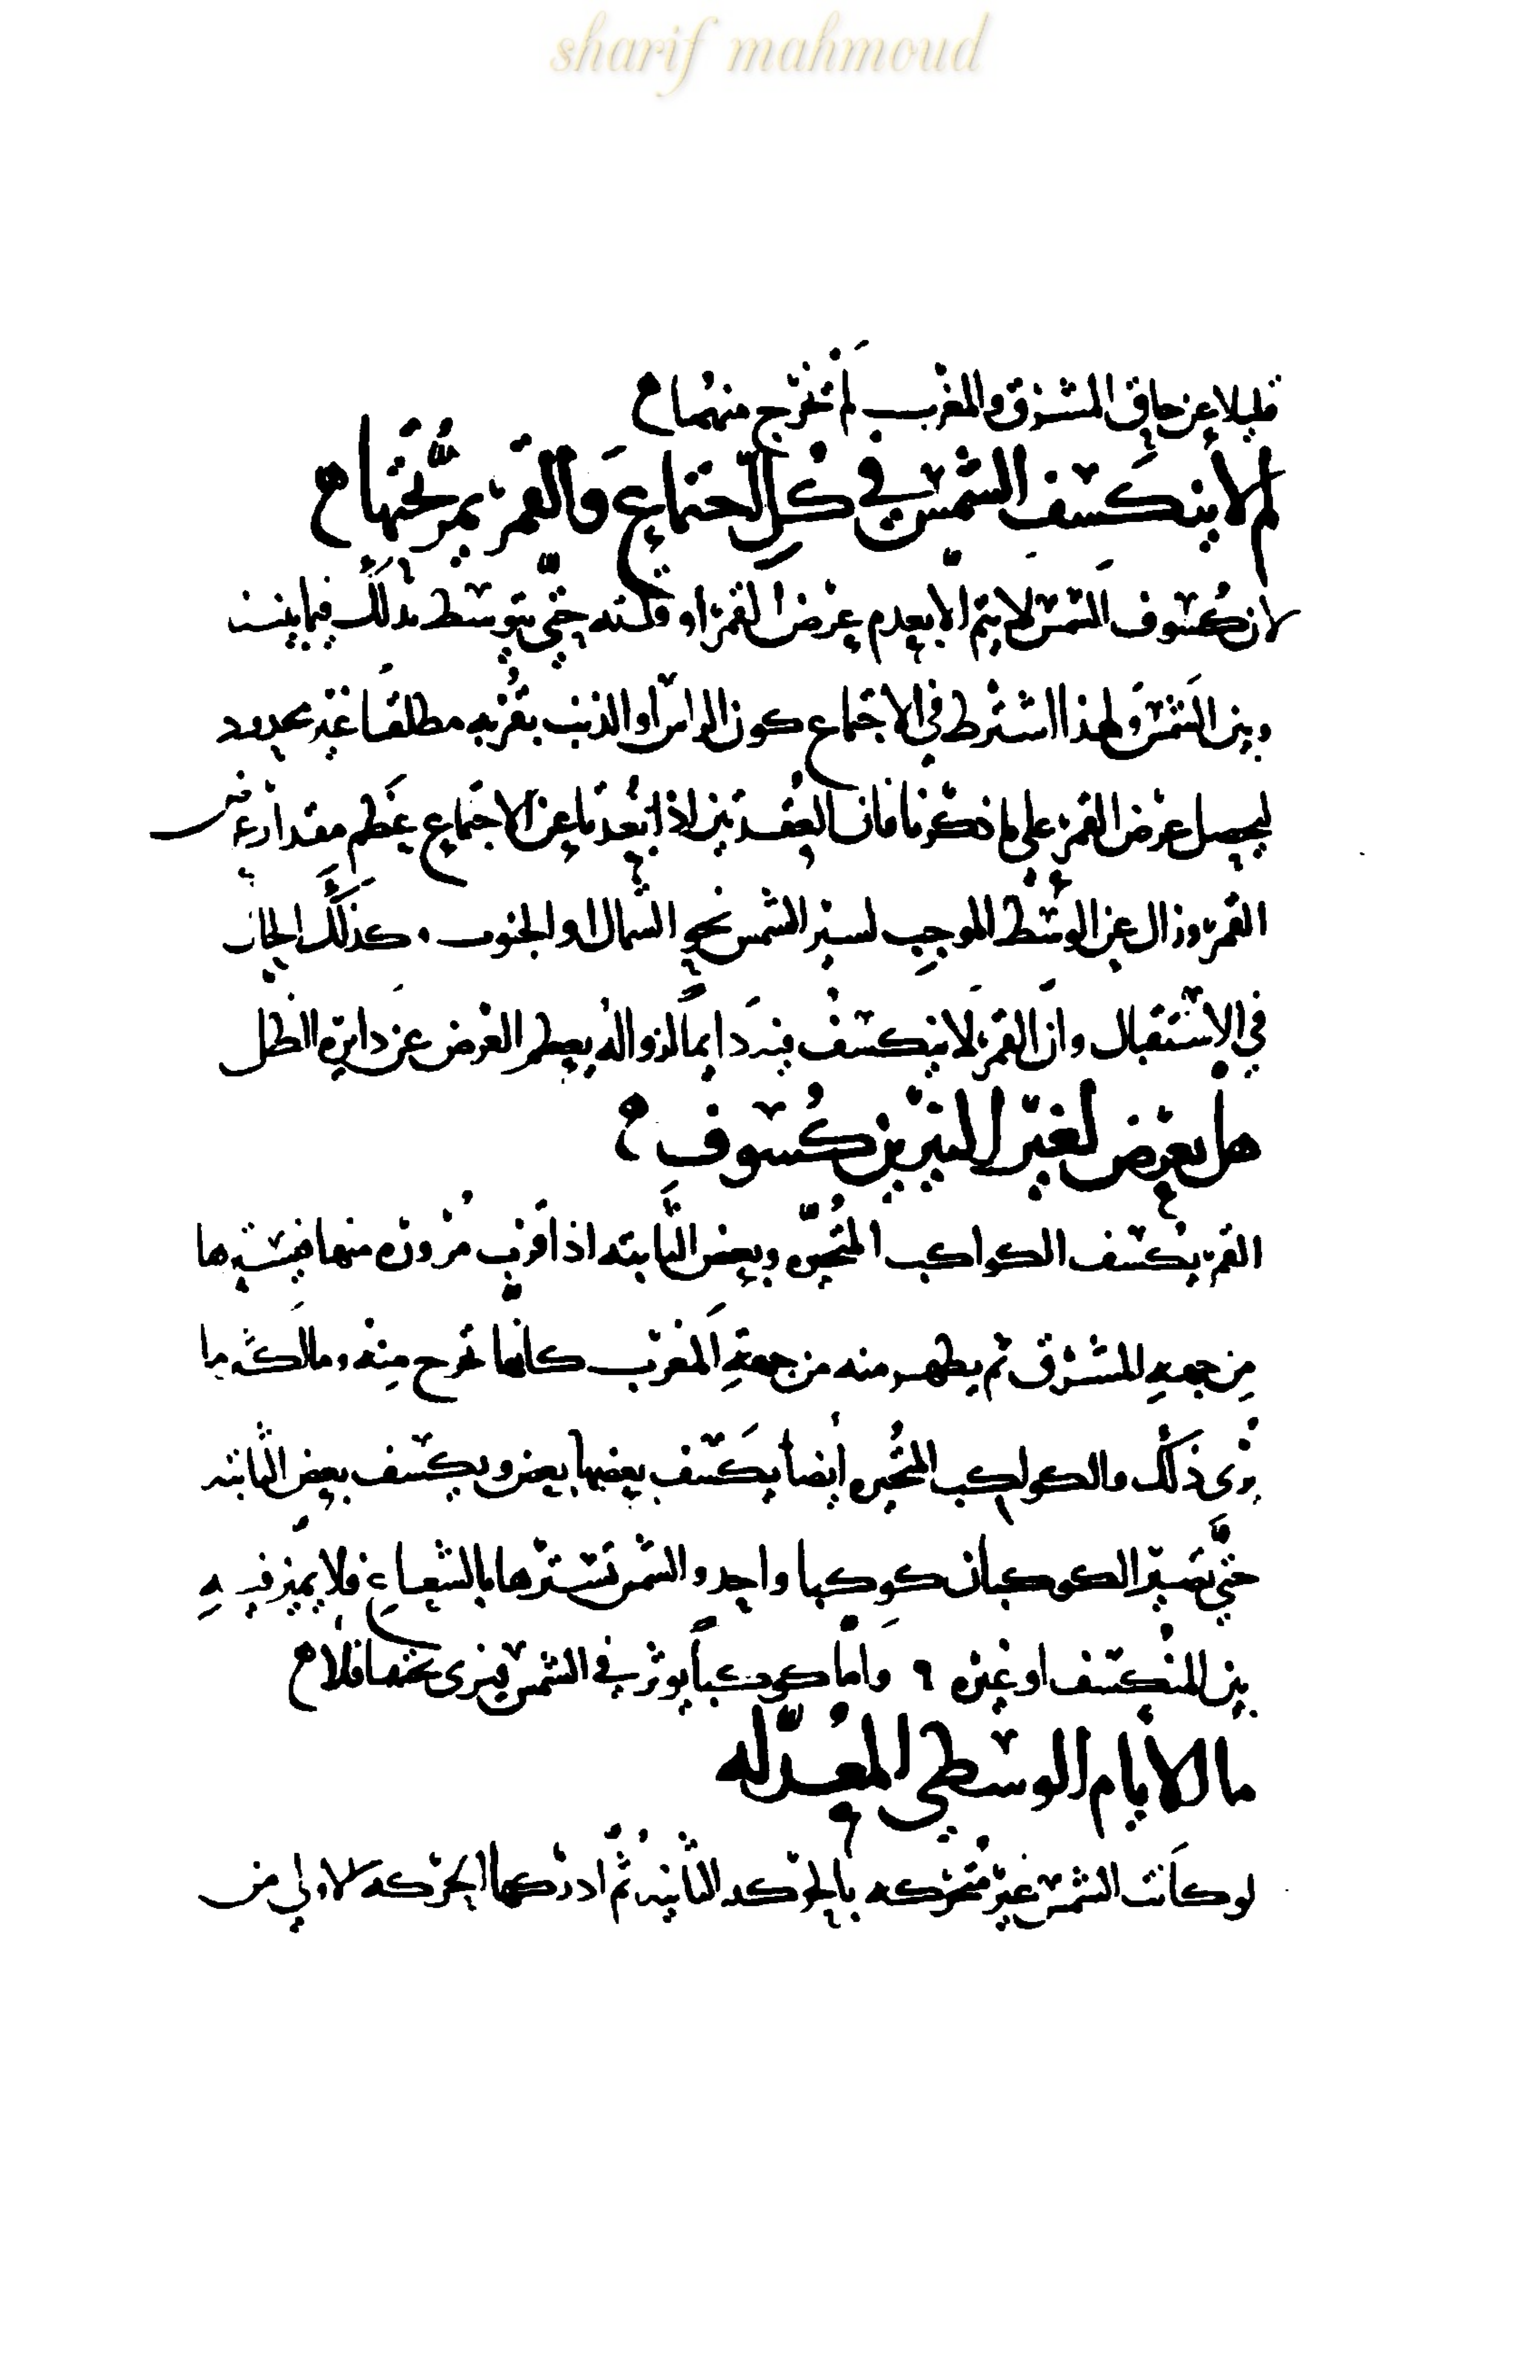 sharif mahmoud
قليلا عن حاق المشرق والمغرب لم تخرج منهما
لم لا ينكسف الشمس في كل اجتماع والقمر يمر تحتها
لان كسوف الشمس لما لم يتم الا بعدم عرض القمر او قلته حتى يتوسط بذلك فيما بيننا
وبين الشمس ولهذا اشترط في الاجتماع كون الراس او الذنب بقربه مطلقا غير محدود
ليحصل عرض القمر على ما ذكرنا فان العقدتين اذا ابعدتا عن الاجتماع عظم مقدار عرض
القمر وزال عن الوسط الموجب لستر الشمس نحو الشمال او الجنوب . كذلك الحال
في الاستقبال وان القمر لا ينكسف فيه دايما لزواله بعظم العرض عن دايرة الظل
هل يعرض لغير النيرين كسوف
القمر يكسف الكواكب المتحيره وبعض الثابته اذا قرب مروره منها فيسترها
من جهه المشرق ثم يظهر منه من جهة المغرب كانها تخرج منه وما لك ما
يرى ذلك والكواكب المتحيره ايضا يكسف بعضها بعض ويكسف بعض الثابته
حتى تصير الكوكبان كوكبا واحد والشمس تسترها بالشعاع فلا يميز فيه
بين المنكسف او غيره ٩ واما كوكبا يوثر في الشمس فيرى تحتها فلا
ما الايام الوسطي المعدله
لو كانت الشمس غير متحركه بالحركه الثانيه ثم ادركها الحركه الاولي من